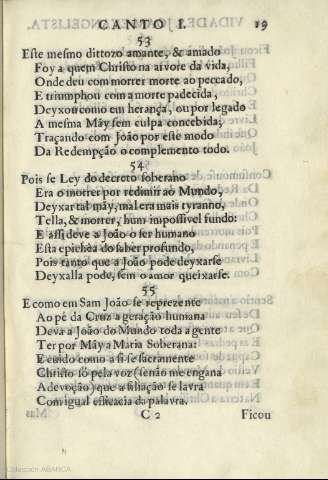 CANTO I. 19
53
Este mesmo dittozo amante, & amado
Foy a quem Christo na arvore da vida,
Onde deu com morrer morte ao peccado,
E triumphou com a morte padecida,
Deyxou como em herança, ou por legado
A mesma Mãy sem culpa concebida;
Traçando com João por este modo
Da Redempção o complemento todo.
54
Pois se Ley do decreto soberano
Era o morrer por redimir ao Mundo,
Deyxar tal mãy, mal era mais tyranno,
Tella, & morrer, hum impossivel fundo:
E assi deve a João o ser humano
Esta epichèa do saber profundo,
Pois tanto que a João pode deyxarse
Deyxalla pode, sem o amor queixarse.
55
E como em Sam João se reprezente
Ao pé da Cruz a geração humana
Deva a João do Mundo toda a gente
Ter por Mãy a Maria Soberana:
E cuido como a si se sacramente
Christo só pela voz (senão me engana
A devoção) que a filiação se lavra
Com igual efficacia da palavra.
C 2 Ficou
Colección ABANCA